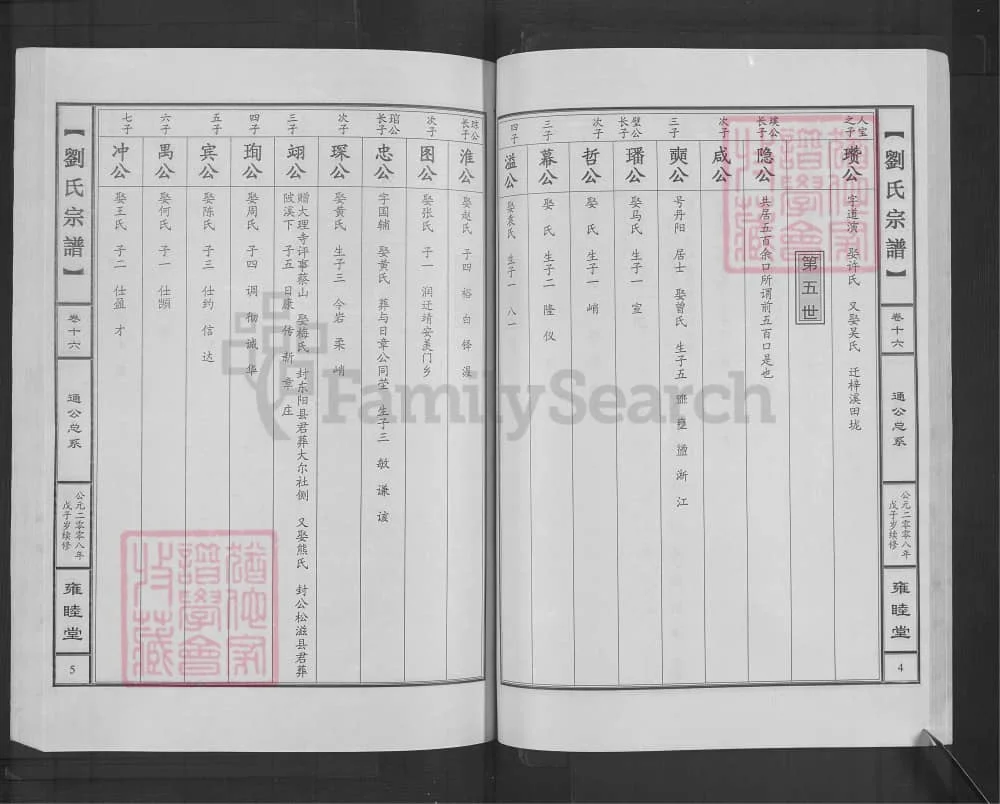 【劉氏宗譜】
卷十六
通公总系
公元二零零八年
戊子岁续修
雍睦堂
4
人宝
之子
瓒公
字道演 娶许氏 又娶吴氏 迁梓溪田垅
第五世
璞公
长子
隐公
共居五百余口所谓前五百口是也
次子
咸公
三子
奭公
号丹阳 居士 娶曾氏 生子五 雍 渐 江
璧公
长子
璠公
娶马氏 生子一 宣
次子
哲公
娶 氏 生子一 峭
三子
幕公
娶 氏 生子二 隆 仪
四子
溢公
娶袁氏 生子一 八一
琮公
长子
淮公
娶赵氏 子四 裕 白 铎 湜
次子
图公
娶张氏 子一 润迁靖安美门乡
琯公
长子
忠公
字国辅 娶黄氏 葬与日章公同茔 生子三 敏 谦 该
次子
琛公
娶黄氏 生子三 令岩 柔 峭
三子
翊公
赠大理寺评事蔡山 娶梅氏 封东阳县君葬大尔社侧 又娶熊氏 封公松滋县君葬
陂溪下 子五 日康 传 新 章 庄
四子
珣公
娶周氏 子四 调 彻 诚 华
五子
宾公
娶陈氏 子三 仕约 信 达
六子
禺公
娶何氏 子一 仕颢
七子
冲公
娶王氏 子二 仕盈 才
【劉氏宗譜】
卷十六
通公总系
公元二零零八年
戊子岁续修
雍睦堂
5
FamilySearch